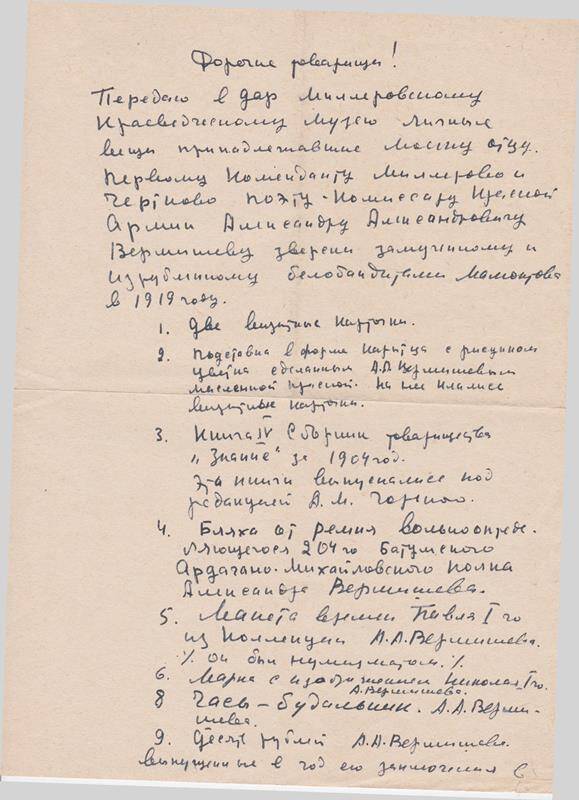 Дорогие товарищи!
Передаю в дар Миллеровскому
Краеведческому музею личные
вещи принадлежавшие моему отцу.
Первому Коменданту Миллерово и
Чертково поэту-комиссару Красной
Армии Александру Александровичу
Вермишеву зверски замученному и
изрубленному белобандитами Мамонтова
в 1919 году.
1. Две визитные карточки.
2. Подставка в форме корытца с рисунком
цветка сделанным А.А. Вермишевым
масленной краской. На нее клались
визитные карточки.
3. Книга IV Сборник товарищества
„Знание" за 1904 год.
Эта книги выпускались под
редакцией А.М. Горького.
4. Бляха от ремня вольноопреде-
ляющегося 204го Батумского
Ардагано-Михайловского полка
Александра Вермишева.
5. Монета времен Павла I го
из коллекции А.А. Вермишева.
٪ он был нумизматом ٪
6. Марка с изображением Николая I го.
А. Вермишева.
8 Часы – будильник. А.А. Верми-
шева.
9. Десять рублей А.А. Вермишева.
выпущенные в год его заключения в